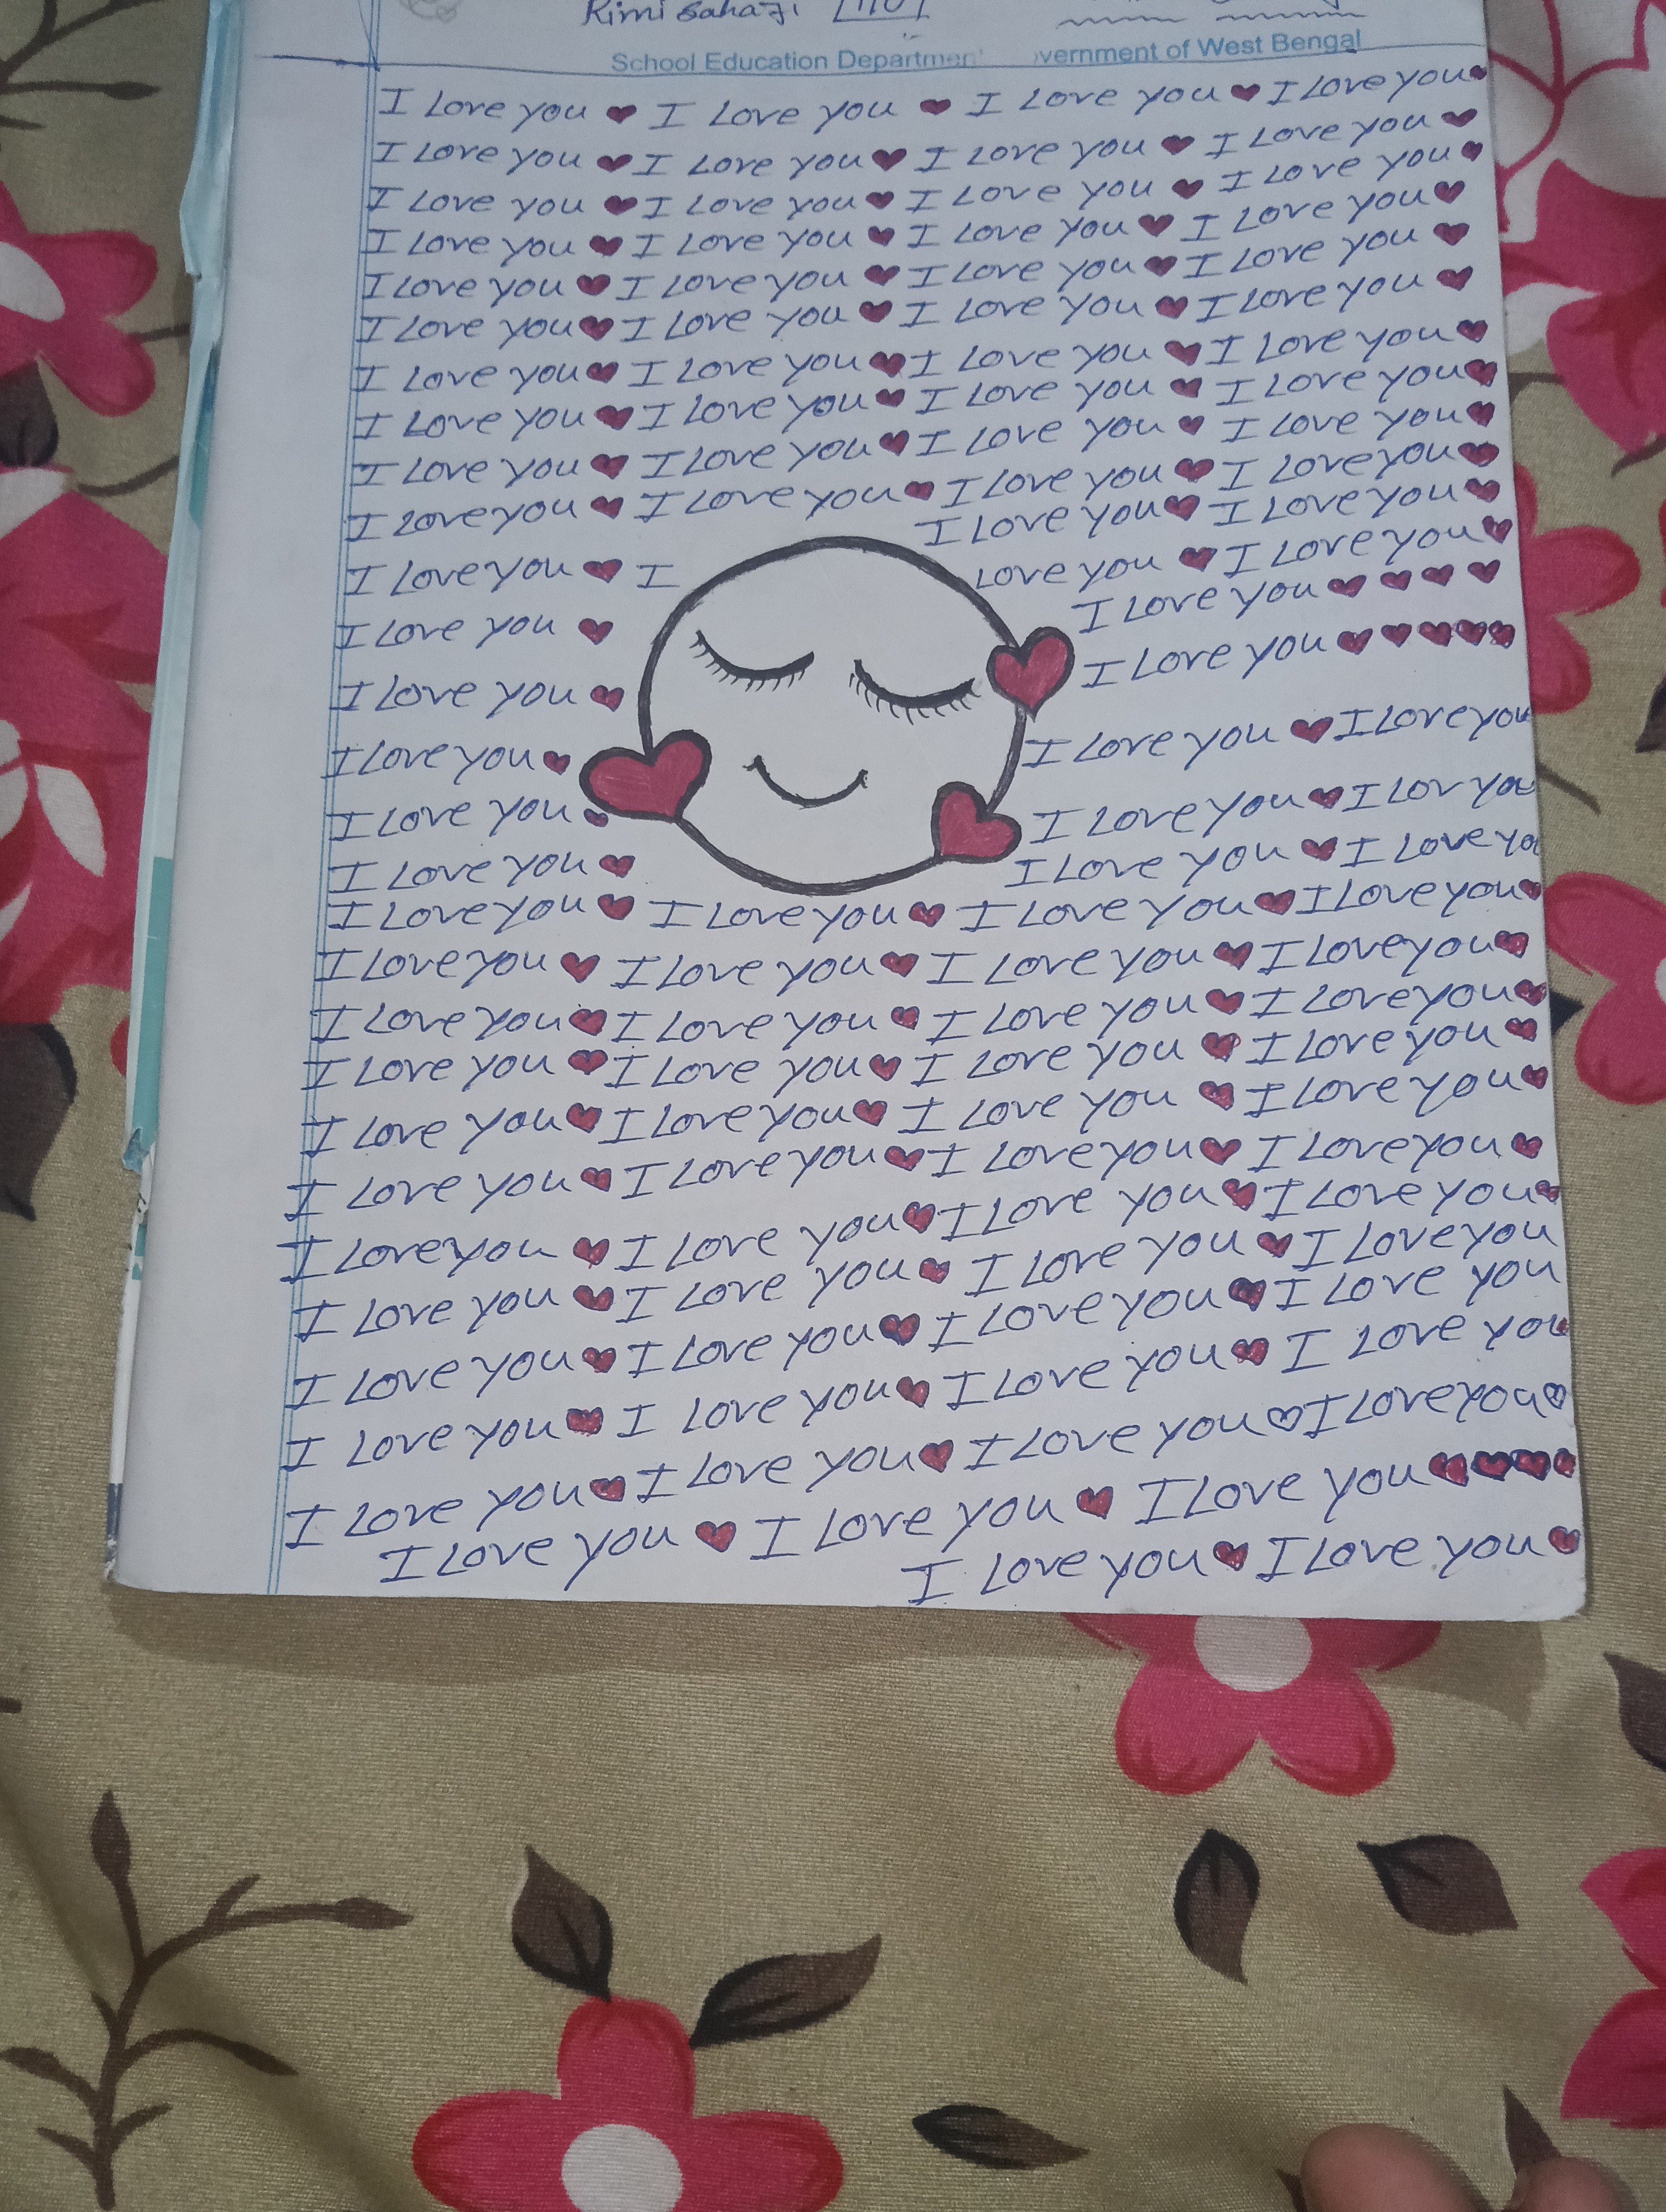 Rimi
School Education Departmen vernment of West Bengal
I Love you I Love you I Love you I Love you
I Love you I Love you I Love you I Love you
I Love you I Love you I Love you I Love you
I Love you I Love you I Love you I Love you
I Love you I Love you I Love you I Love you
I Love you I Love you I Love you I Love you
I Love you I Love you I Love you I Love you
I Love you I Love you I Love you I Love you
I Love you I Love you I Love you I Love you
I Love you I Love you I Love you I Love you
I Love you I Love you
I Love you I Love you I Love you
I Love you I Love you
I Love you I Love you
I Love you I Love you I Love you
I Love you I Love you I Lov you
I Love you I Love you I Love you
I Love you I Love you I Love you I Love you
I Love you I Love you I Love you I Love you
I Love you I Love you I Love you I Love you
I Love you I Love you I Love you I Love you
I Love you I Love you I Love you I Love you
I Love you I Love you I Love you I Love you
I Love you I Love you I Love you I Love you
I Love you I Love you I Love you I Love you
I Love you I Love you I Love you I Love you
I Love you I Love you I Love you I Love you
I Love you I Love you I Love you I Love you
I Love you I Love you I Love you
I Love you I Love you